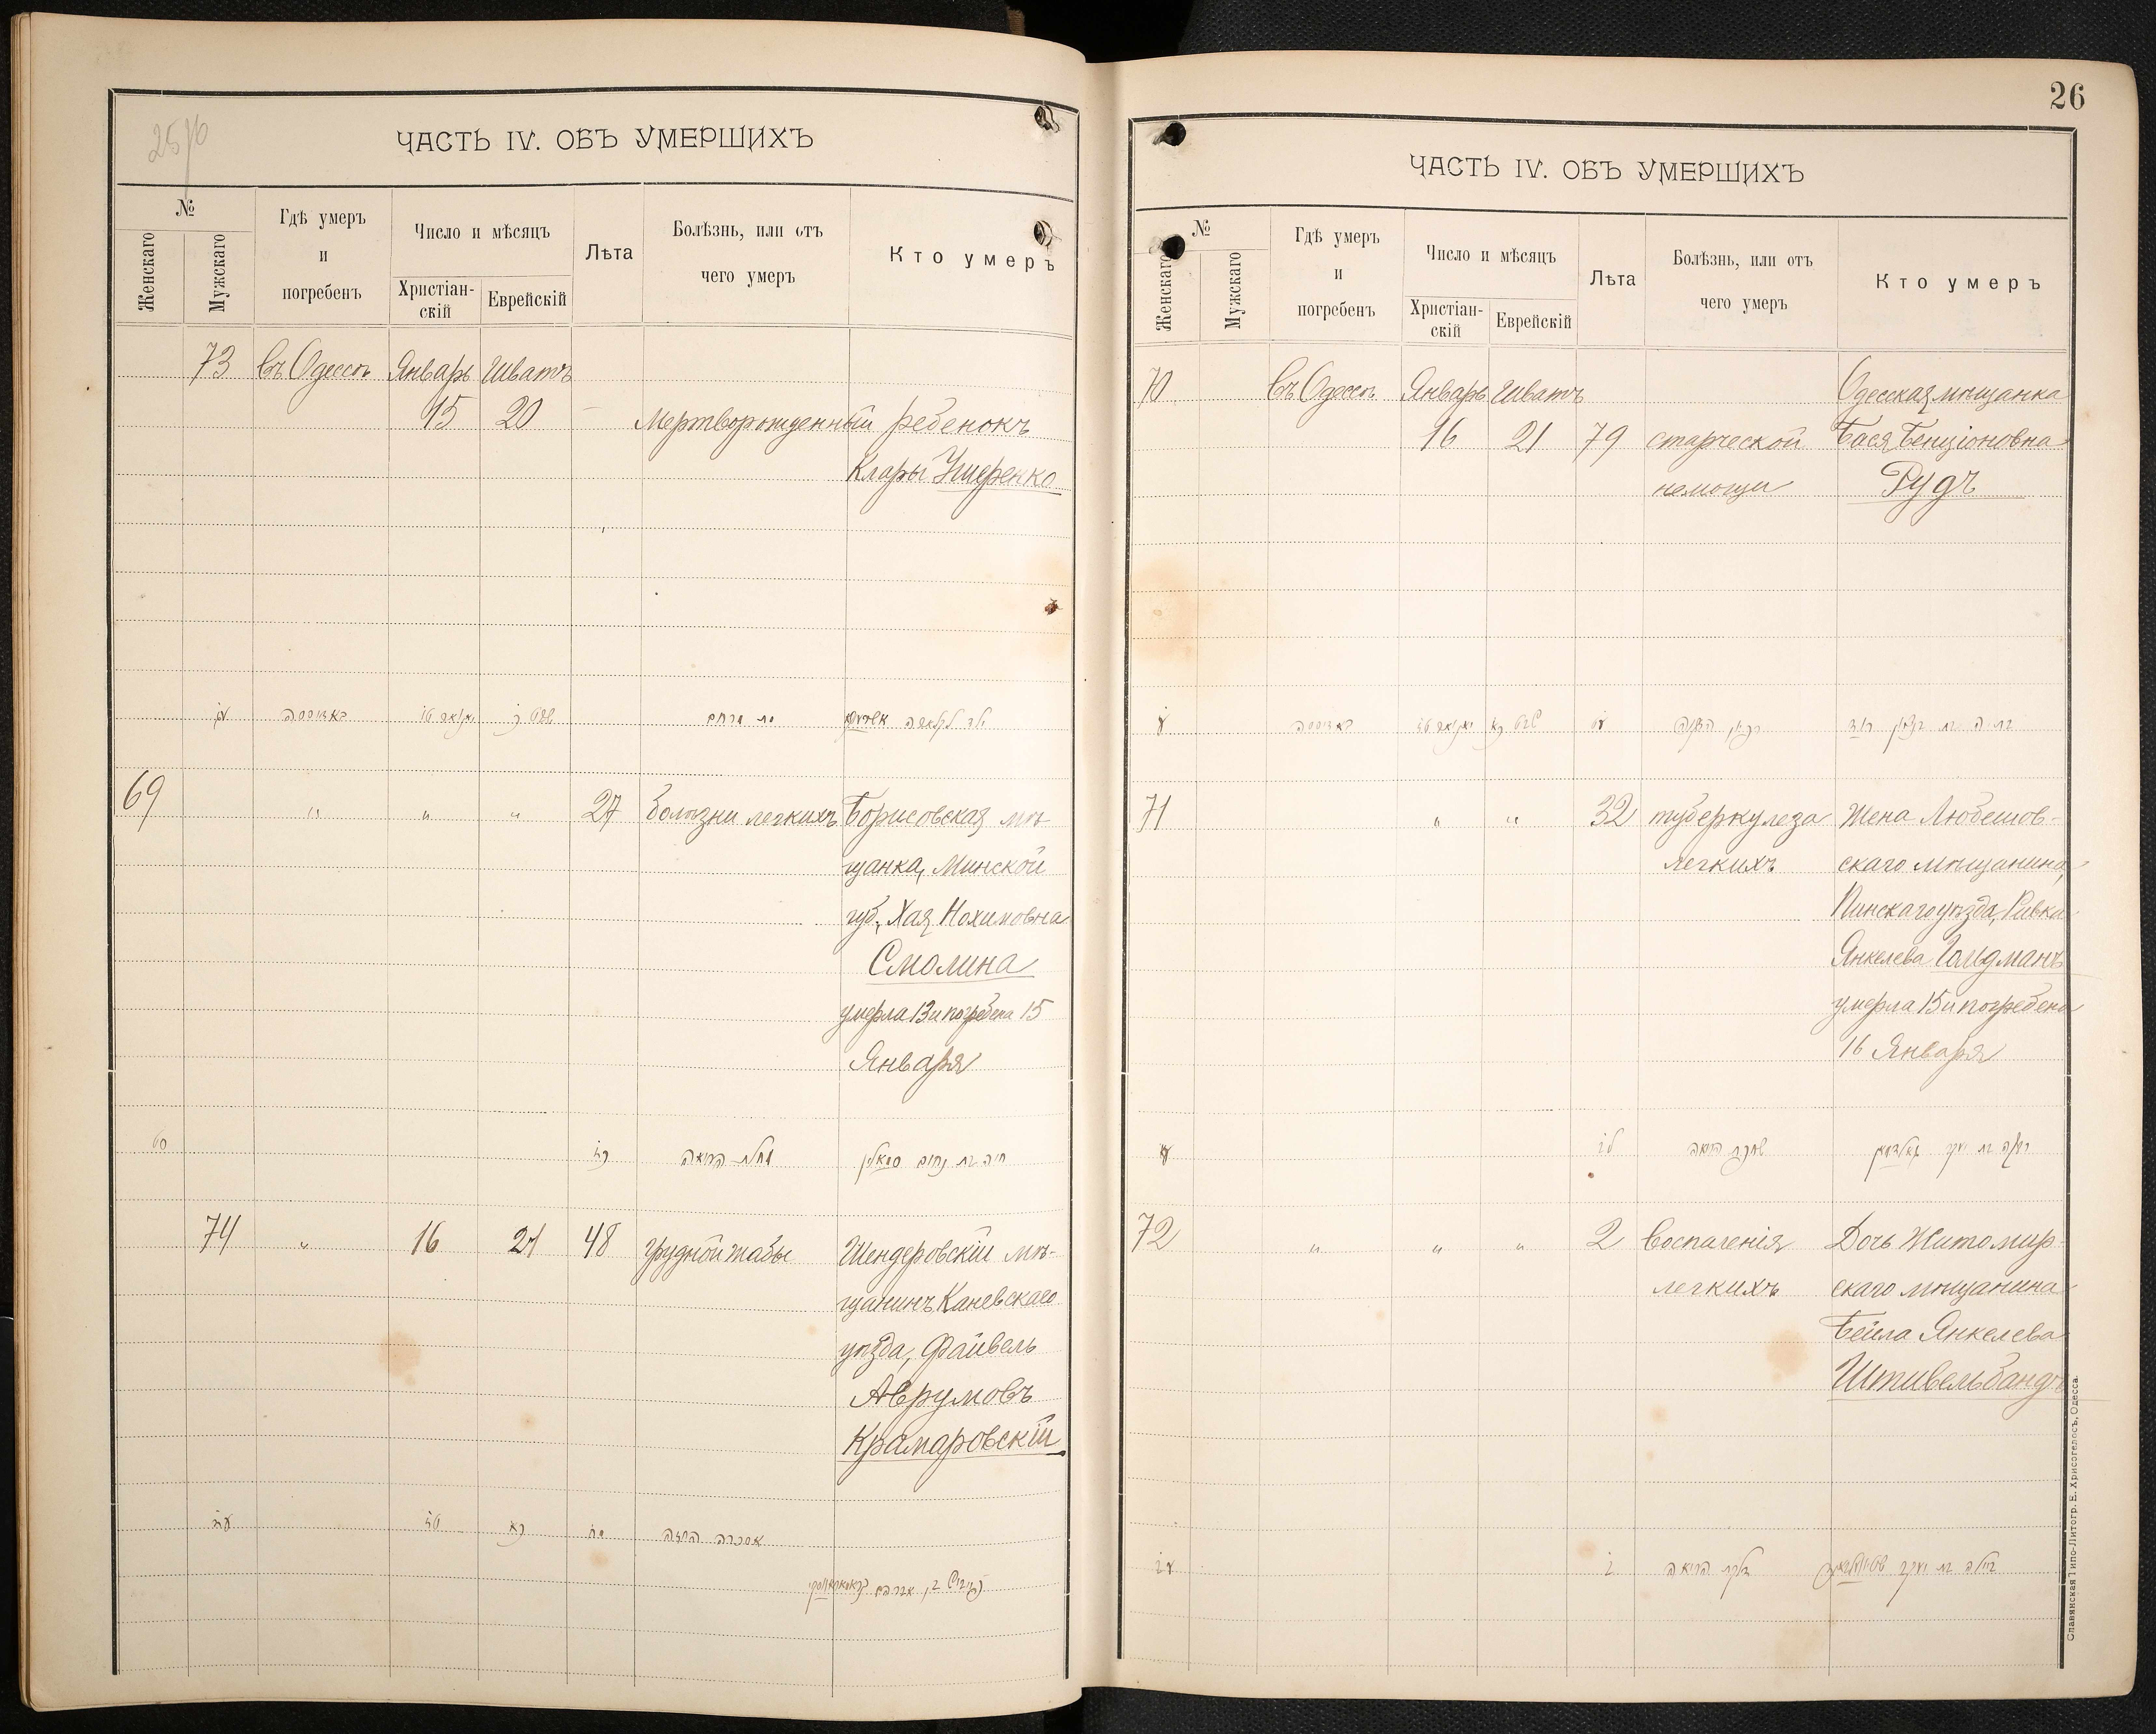 25/6
ЧАСТЬ IV. ОБЪ УМЕРШИХЪ
№
Женскаго
Мужскаго
Гдѣ умеръ
и
погребенъ
Число и мѣсяцъ
Христіан-
скій
Еврейскій
Лѣта
Болѣзнь, или отъ
чего умеръ
Кто умеръ
73 въ Одессѣ Январь Шватъ
15 20 — Мертворожденный ребенокъ
Клары
69 " " " 27 болѣзни легкихъ Борисовская мѣ-
щанка, Минской
губ., Хая Нохимовна
Смолина
умерла 13 и погребена 15
Января
חיה בת נחום סמאלין
74 " 16 21 48 грудной жабы Шендеровскій мѣ-
щанинъ, Каневскаго
уѣзда, Файвель
Аврумовъ
Крамаровскій
26
ЧАСТЬ IV. ОБЪ УМЕРШИХЪ
№
Женскаго
Мужскаго
Гдѣ умеръ
и
погребенъ
Число и мѣсяцъ
Христіан-
скій
Еврейскій
Лѣта
Болѣзнь, или отъ
чего умеръ
Кто умеръ
70 въ Одессѣ Январь Шватъ Одесская мѣщанка
16 21 79 старческой Бася Бенціоновна
немощи Рудъ
71 " " 32 туберкулеза Жена Любешов-
легкихъ скаго мѣщанина,
Пинскаго уѣзда, Ривка
Янкелева Голдманъ
умерла 15 и погребена
16 Января
72 " " " 2 воспаленія Дочь Житомир-
легкихъ скаго мѣщанина
Бейла Янкелева
Штивельбандъ
Славянская Типо-Литогр. Е. Хрисогелосъ, Одесса.